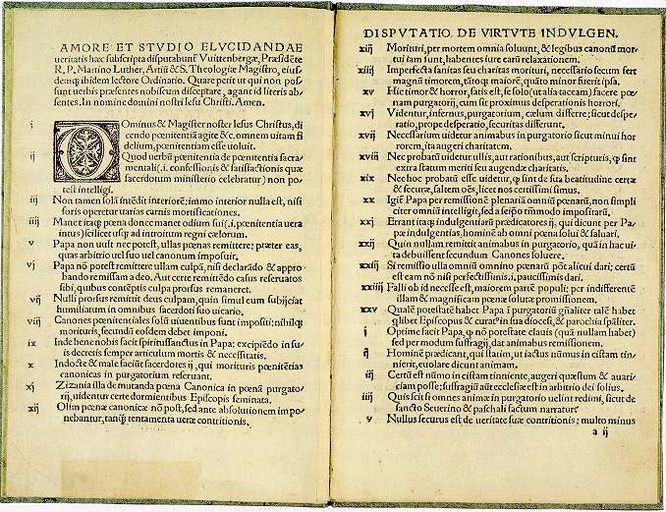 AMORE ET STVDIO ELVCIDANDAE
ueritatis hæc subscripta disputabunt̃ Vuittenbergæ, Præsidẽte
R. P. Martino Luther, Artiũ & S. Theologiæ Magistro, eius-
demq; ibidem lectore Ordinatio. Quare petit ut qui non pos-
sunt uerbis præsentes nobiscum disceptare, agant id literis ab-
sentes. In nomine domini nostri Iesu Christi. Amen.
i Ominus & Magister noster Iesus Christus, di
cendo pœnitentiã agite &c. omnem uitam fi
delium, pœnitentiam esse uoluit.
ij Quod uerbũ pœnitentia de pœnitentia sacra-
mentali (.i. confessiõis & satisfactionis quæ
sacerdotum ministerio celebratur) non po-
test intelligi.
iij Non tamen solã intẽdit interiorẽ: immo interior nulla est, nisi
foris operetur uarias carnis mortificationes.
iiij Manet itaq; pœna donec manet odium sui (.i. pœnitentia uera
intus) scilicet usq; ad introitum regni cælorum.
v Papa non uult nec potest, ullas pœnas remittere: præter eas,
quas arbitrio uel suo uel canonum imposuit.
vj Papa nõ potest remittere ullam culpã, nisi declarãdo & appro-
bando remissam a deo. Aut certe remittẽdo casus reseruatos
sibi, quibus contẽptis culpa prorsus remaneret.
vij Nulli prorsus remittit deus culpam, quin simul eum subijciat
humiliatum in omnibus sacerdoti suo uicario.
viij Canones pœnitentiales solũ uiuentibus sunt impositi: nihilq;
morituris, secundũ eosdem debet imponi.
ix Inde bene nobis facit spiritussanctus in Papa: excipiẽdo in su-
is decretis semper articulum mortis & necessitatis.
x Indocte & male faciũt sacerdotes ij, qui morituris pœnitẽtias
canonicas in purgatorium reseruant.
xj Zizania illa de mutanda pœna Canonica in pœnã purgato-
rij, uidentur certe dormientibus Episcopis seminata.
xij Olim pœnæ canonicæ nõ post, sed ante absolutionem impo-
nebantur, tanq̃ tentamenta ueræ contritionis.
DISPVTATIO DE VIRTVTE INDVLGEN.
xiij Morituri, per mortem omnia soluunt, & legibus canonũ mor-
tui iam sunt, habentes iure earũ relaxationem.
xiiij Imperfecta sanitas seu charitas morituri, necessario secum fert
magnũ timorem, tãtoq; maiorẽ, quãto minor fuerit ipsa.
xv Hic timor & horror, satis est, se solo (ut alia taceam) facere pœ-
nam purgatorij, cum sit proximus desperationis horrori.
xvj Videntur, infernus, purgatorium, cælum differre: sicut despe-
ratio, prope desperatio, securitas differunt.
xvij Necessarium uidetur animabus in purgatorio sicut minui hor-
rorem, ita augeri charitatem.
xviij Nec probatũ uidetur ullis, aut rationibus, aut scripturis, q; sint
extra statum meriti seu augendæ charitatis.
xix Nec hoc probatũ esse uidetur, q; sint de sua beatitudine certæ
& securæ, saltem oẽs, licet nos certissimi simus.
xx Igit̃ Papa per remissionẽ plenariã omniũ pœnarũ, non simpli
citer omniũ intelligit, sed a seipõ tm̃modo impositarũ.
xxj Errant itaq; indulgentiarũ prædicatores ij, qui dicunt per Pa-
pæ indulgentias, hominẽ ab omni pœna solui & saluari.
xxij Quin nullam remittit animabus in purgatorio, quã in hac ui-
ta debuissent secundum Canones soluere.
xxiij Si remissio ulla omniũ omnino pœnarũ põt alicui dari; certũ
est eam nõ nisi perfectissimis .i. paucissimis dari.
xxiiij Falli ob id necesse est, maiorem partẽ populi: per indifferentẽ
illam & magnificam pœnæ solutæ promissionem.
xxv Qualẽ potestatẽ habet Papa ĩ purgatoriũ gñaliter talẽ habet
q̃libet Episcopus & curat9 in sua diocesi, & parochia sp̃aliter.
i Optime facit Papa, q; nõ potestate clauis (quã nullam habet)
sed per modum suffragij, dat animabus remissionem.
ij Hominẽ prædicant, qui statim, ut iactus nũmus in cistam tin-
nierit, euolare dicunt animam.
iij Certũ est nũmo in cistam tinniente, augeri quæstum & auari-
ciam posse: suffragiũ aũt ecclesiæ est in arbitrio dei solius.
iiij Quis scit si omnes animæ in purgatorio uelint redimi, sicut de
sancto Seuerino & paschali factum narratur.
v Nullus securus est de ueritate suæ contritionis; multo minus
a ij